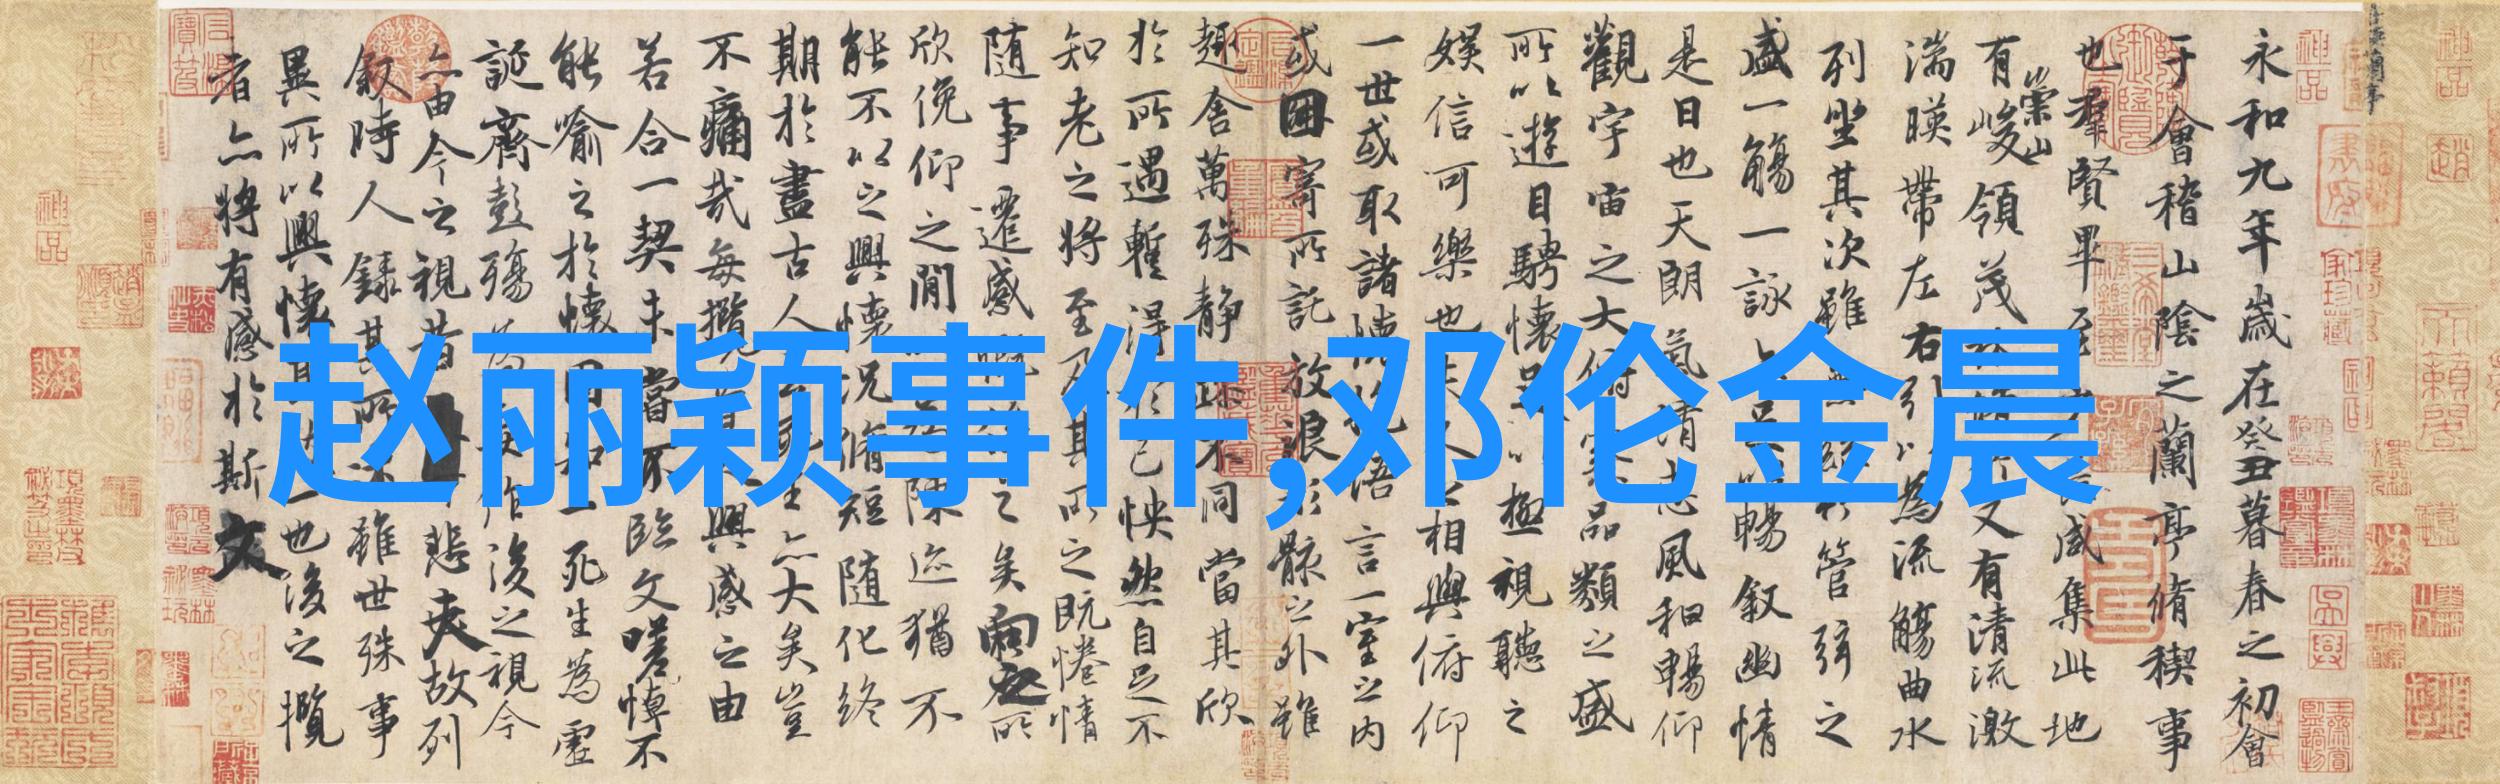 赵丽颖事件,邓伦金晨
永和九年歲在癸丑暮春之初會
于會稽山陰之蘭亭脩稧事
也羣賢畢至咸集此地
有崇山峻領茂林脩又有清流激
湍暎帶左右引以為流觴曲水
列坐其次雖無管弦之
盛一觴一詠亦足以暢敘幽情
是日也天朗氣清惠風和暢仰
觀宇宙之大俯察品類之盛
所以遊目騁懷足以極視聽之
娛信可樂也夫人之相與俯仰
一世或取諸懷抱悟言一室之內
或因寄所託放浪形骸之外雖
趣舍萬殊靜躁不同當其欣
於所遇蹔得於己怏然自足不
知老之將至及其所之既惓情
隨事遷感慨係之矣向之所
欣俛仰之閒以為陳迹猶不
能不以之興懷況脩短隨化終
期於盡古人云死生亦大矣豈
不痛哉每攬昔人興感之由
若合一契未嘗不臨文嗟悼不
能喻之於懷固知一死生為虛
誕齊彭殤為妄作後之視今
亦由今之視昔悲夫故列
敘時人錄其所述雖世殊事
異所以興懷其致一也後之攬
者亦將有感於斯文